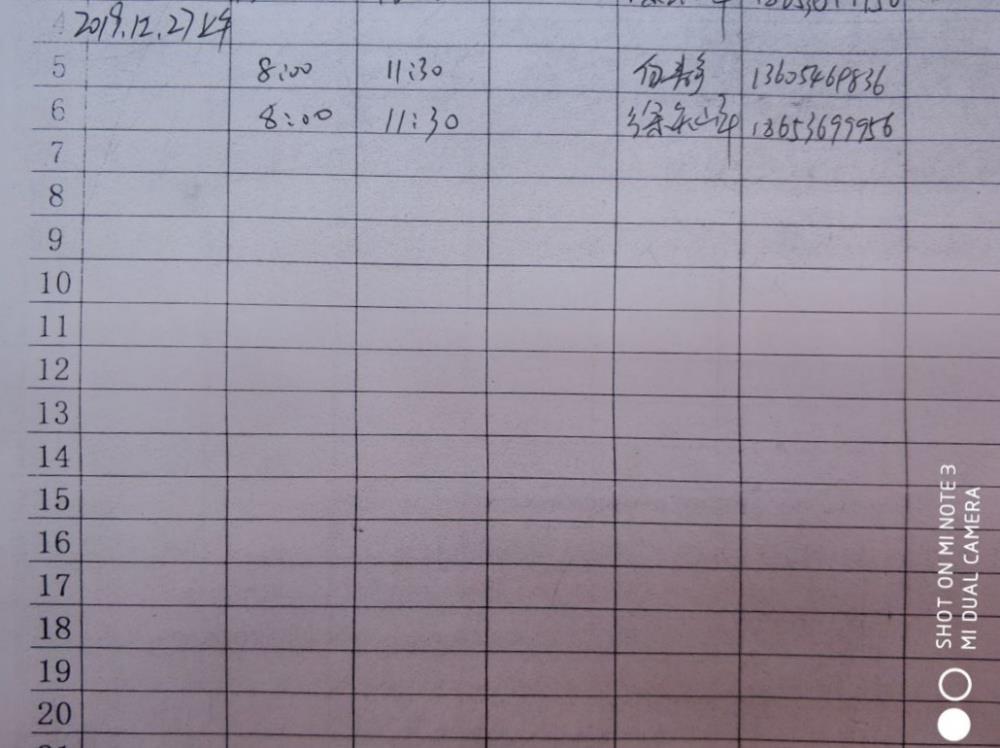 4 2019.12.27上午
5 8:00 11:30 13605469836
6 8:00 11:30 18653699956
7
8
9
10
11
12
13
14
15
16
17
18
19
20
SHOT ON MI NOTE 3
MI DUAL CAMERA